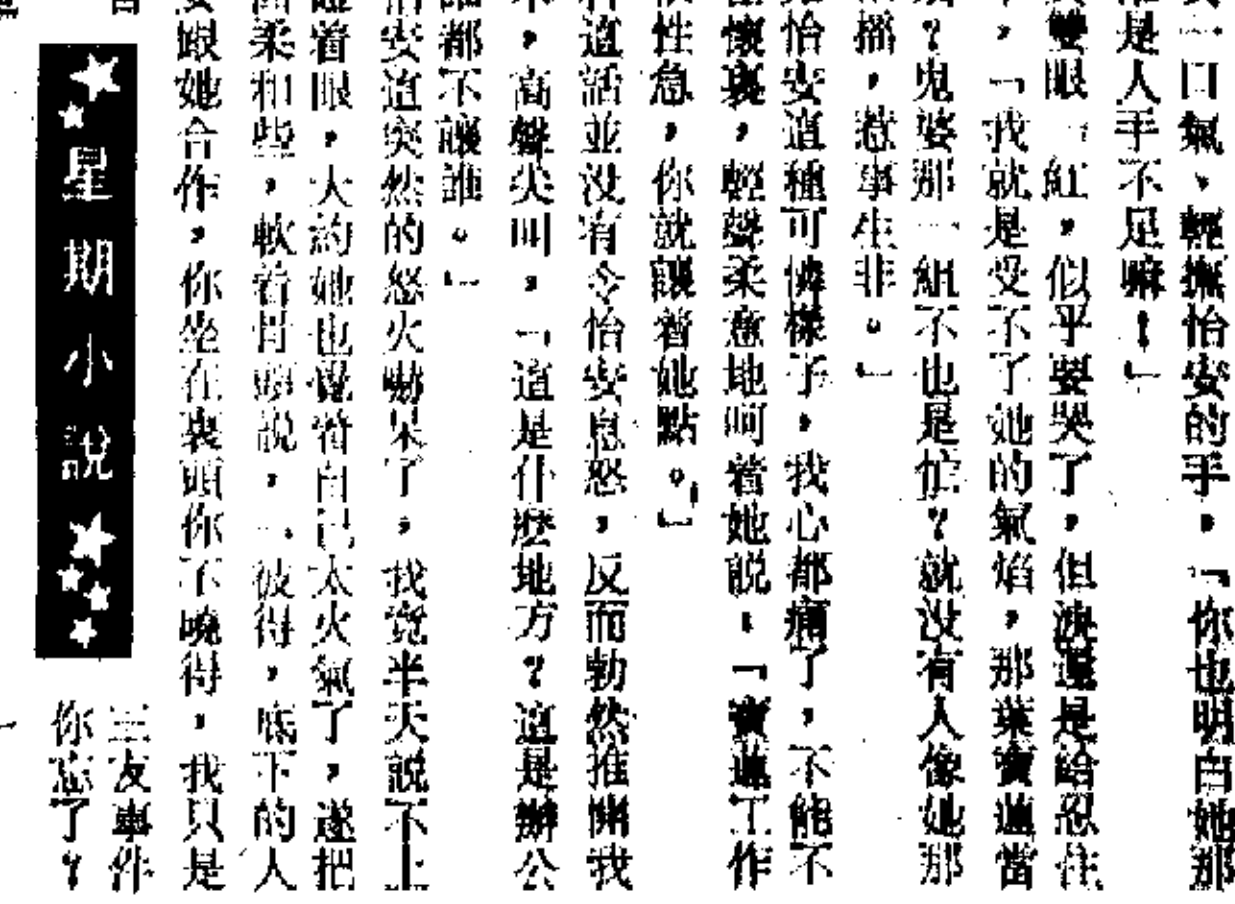 一口氣、輕撫怡安的手，「你也明白她那
是人手不足嘛！」
雙眼一紅，似乎要哭了，但淚還是給忍住
，「我就是受不了她的氣焰，那葉寶蓮當
？鬼婆那一組不也是忙？就沒有人像她那
搖，惹事生非。」
怡安這種可憐樣子，我心都痛了，不能不
懷裏，輕聲柔意地呵着她說：「寶蓮工作
性急，你就讓着她點。」
這話並沒有令怡安息怒，反而勃然推開我
，高聲尖叫，「這是什麼地方？這是辦公
都不讓誰。」
安這突然的怒火嚇呆了，我竟半天說不上
着眼，大約她也覺着自己太火氣了，遂把
柔和些，軟着骨頭說，「彼得，底下的人
跟她合作，你坐在裏頭你不曉得，我只是
星期小說
三友事件
你忘了？